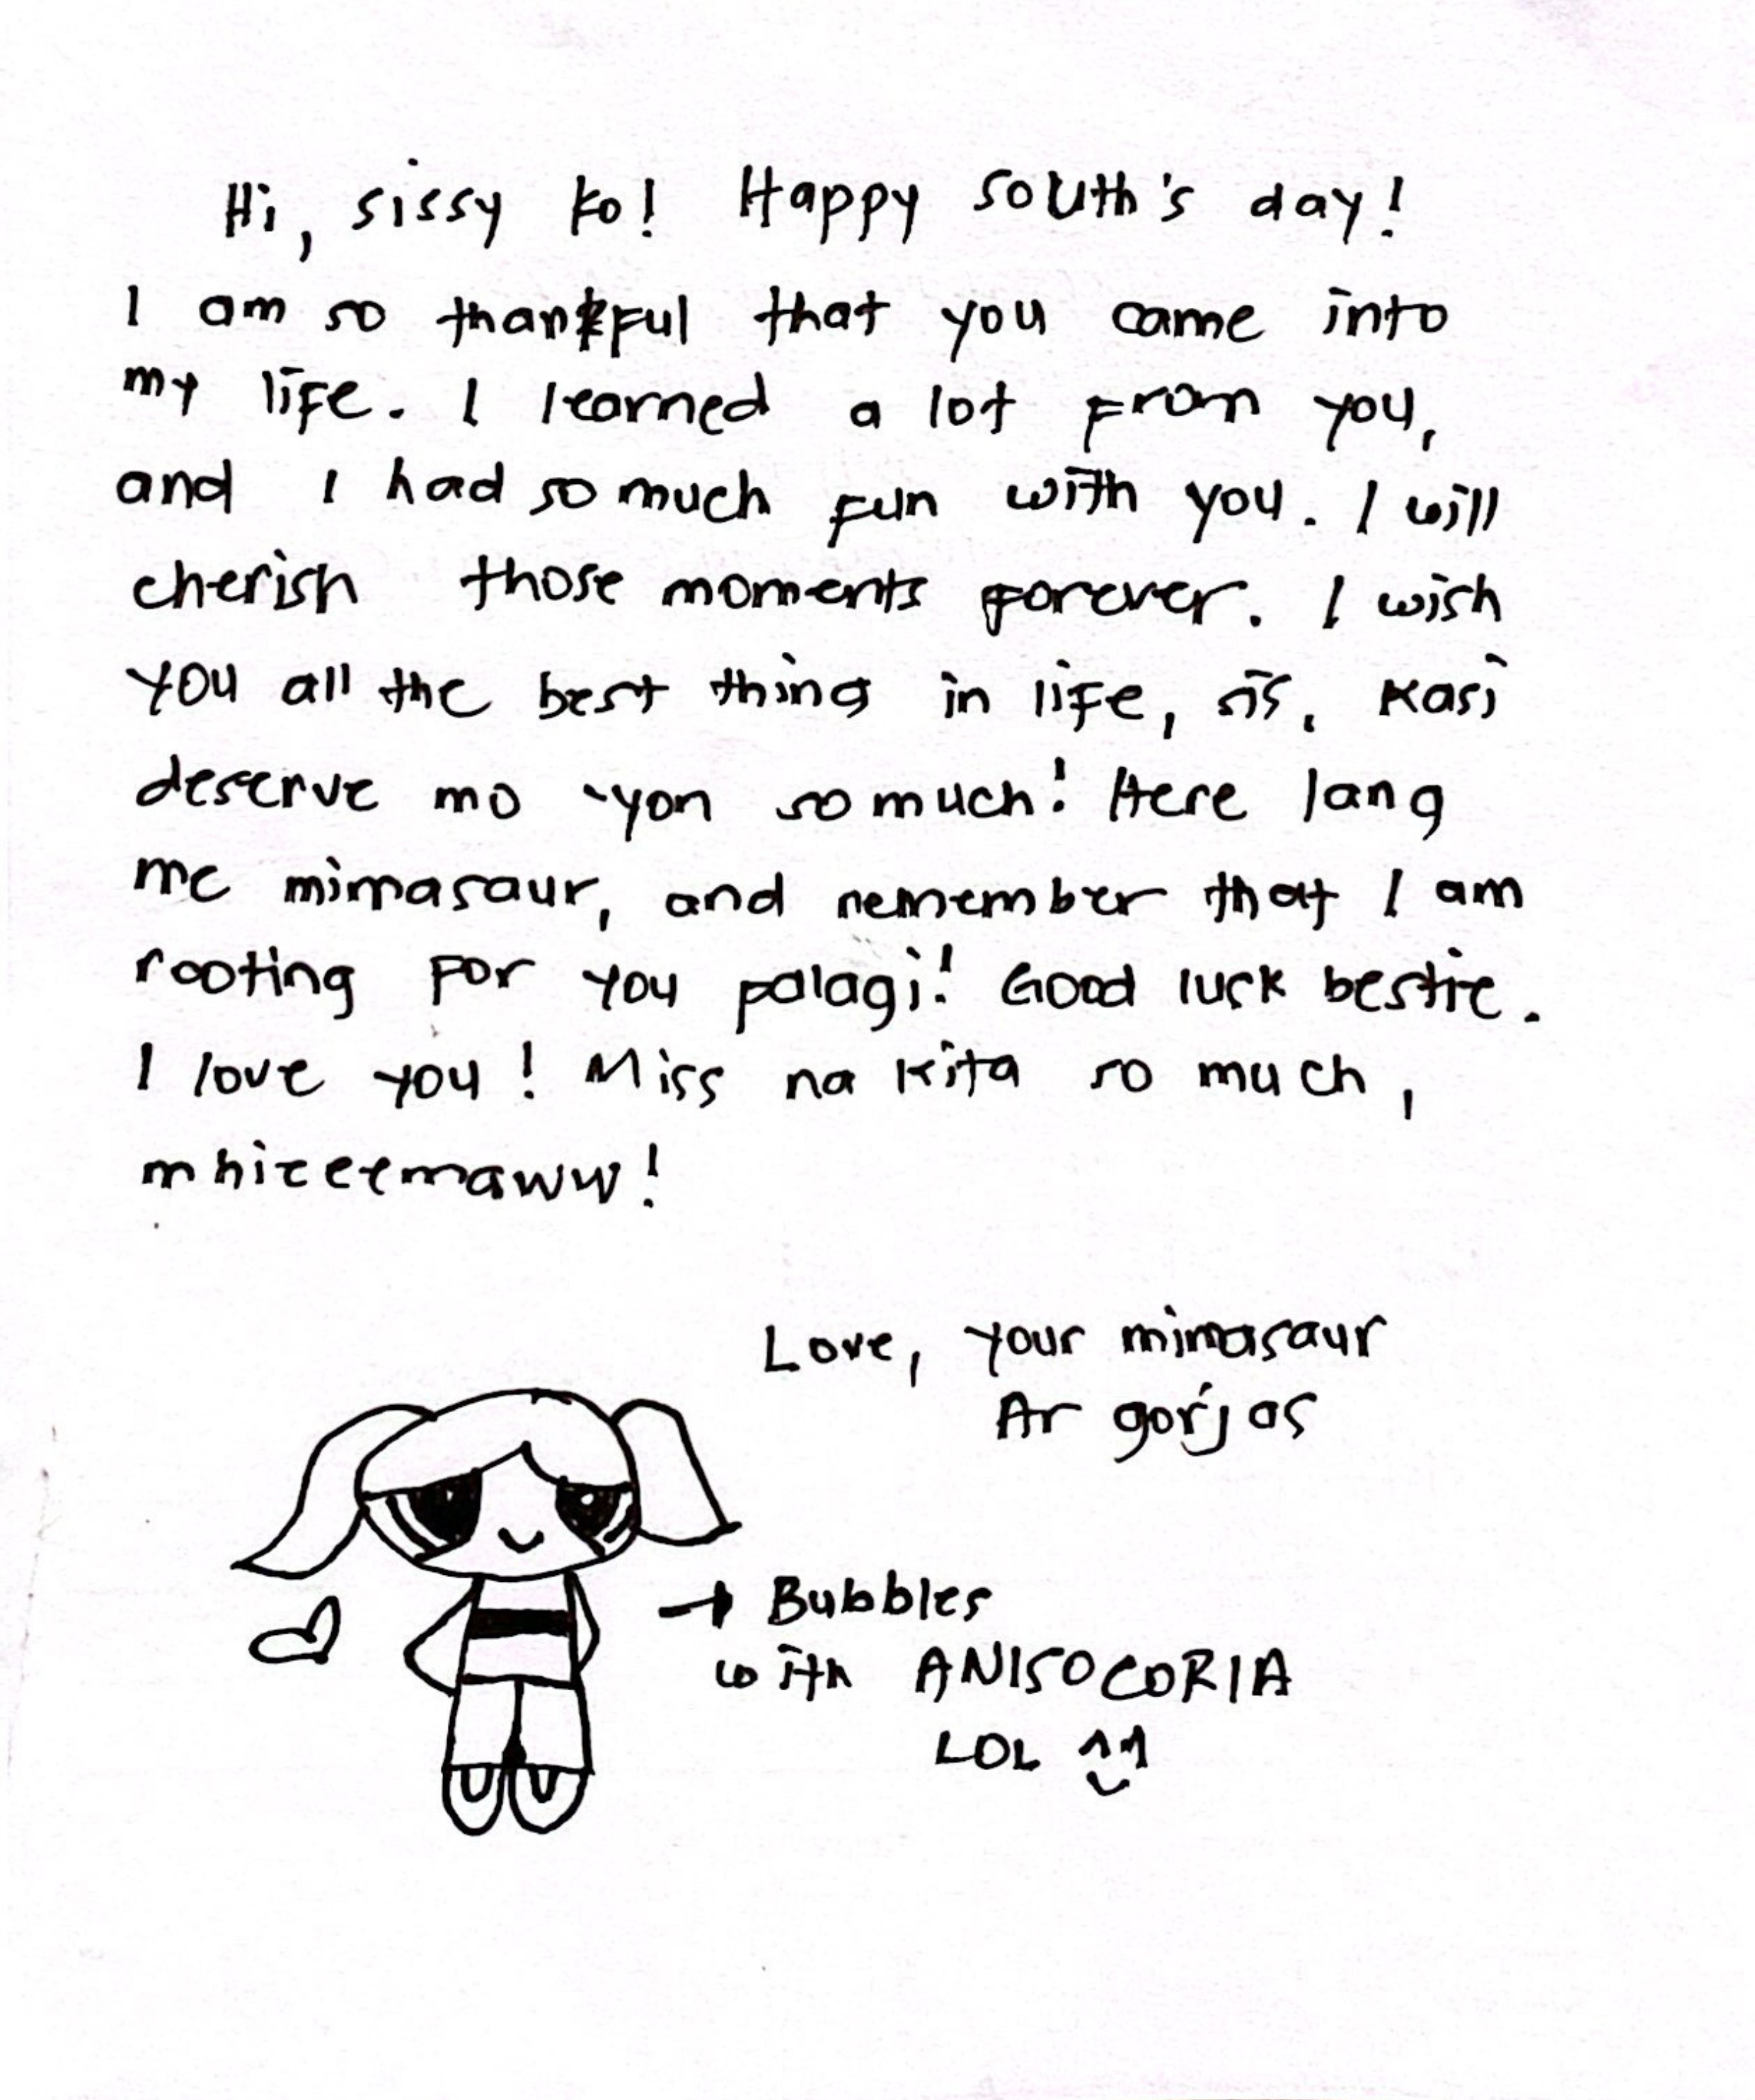 Hi, sissy ko! Happy South's day!
I am so thankful that you came into
my life. I learned a lot from you,
and I had so much fun with you. I will
cherish those moments forever. I wish
you all the best thing in life, sis, kasi
deserve mo 'yon so much! Here lang
me mimasaur, and remember that I am
rooting for you palagi! Good luck bestie.
I love you! Miss na kita so much,
mhieeemaww!
Love, your mimasaur
Ar gorjas
→ Bubbles
with ANISOCORIA
LOL ^^